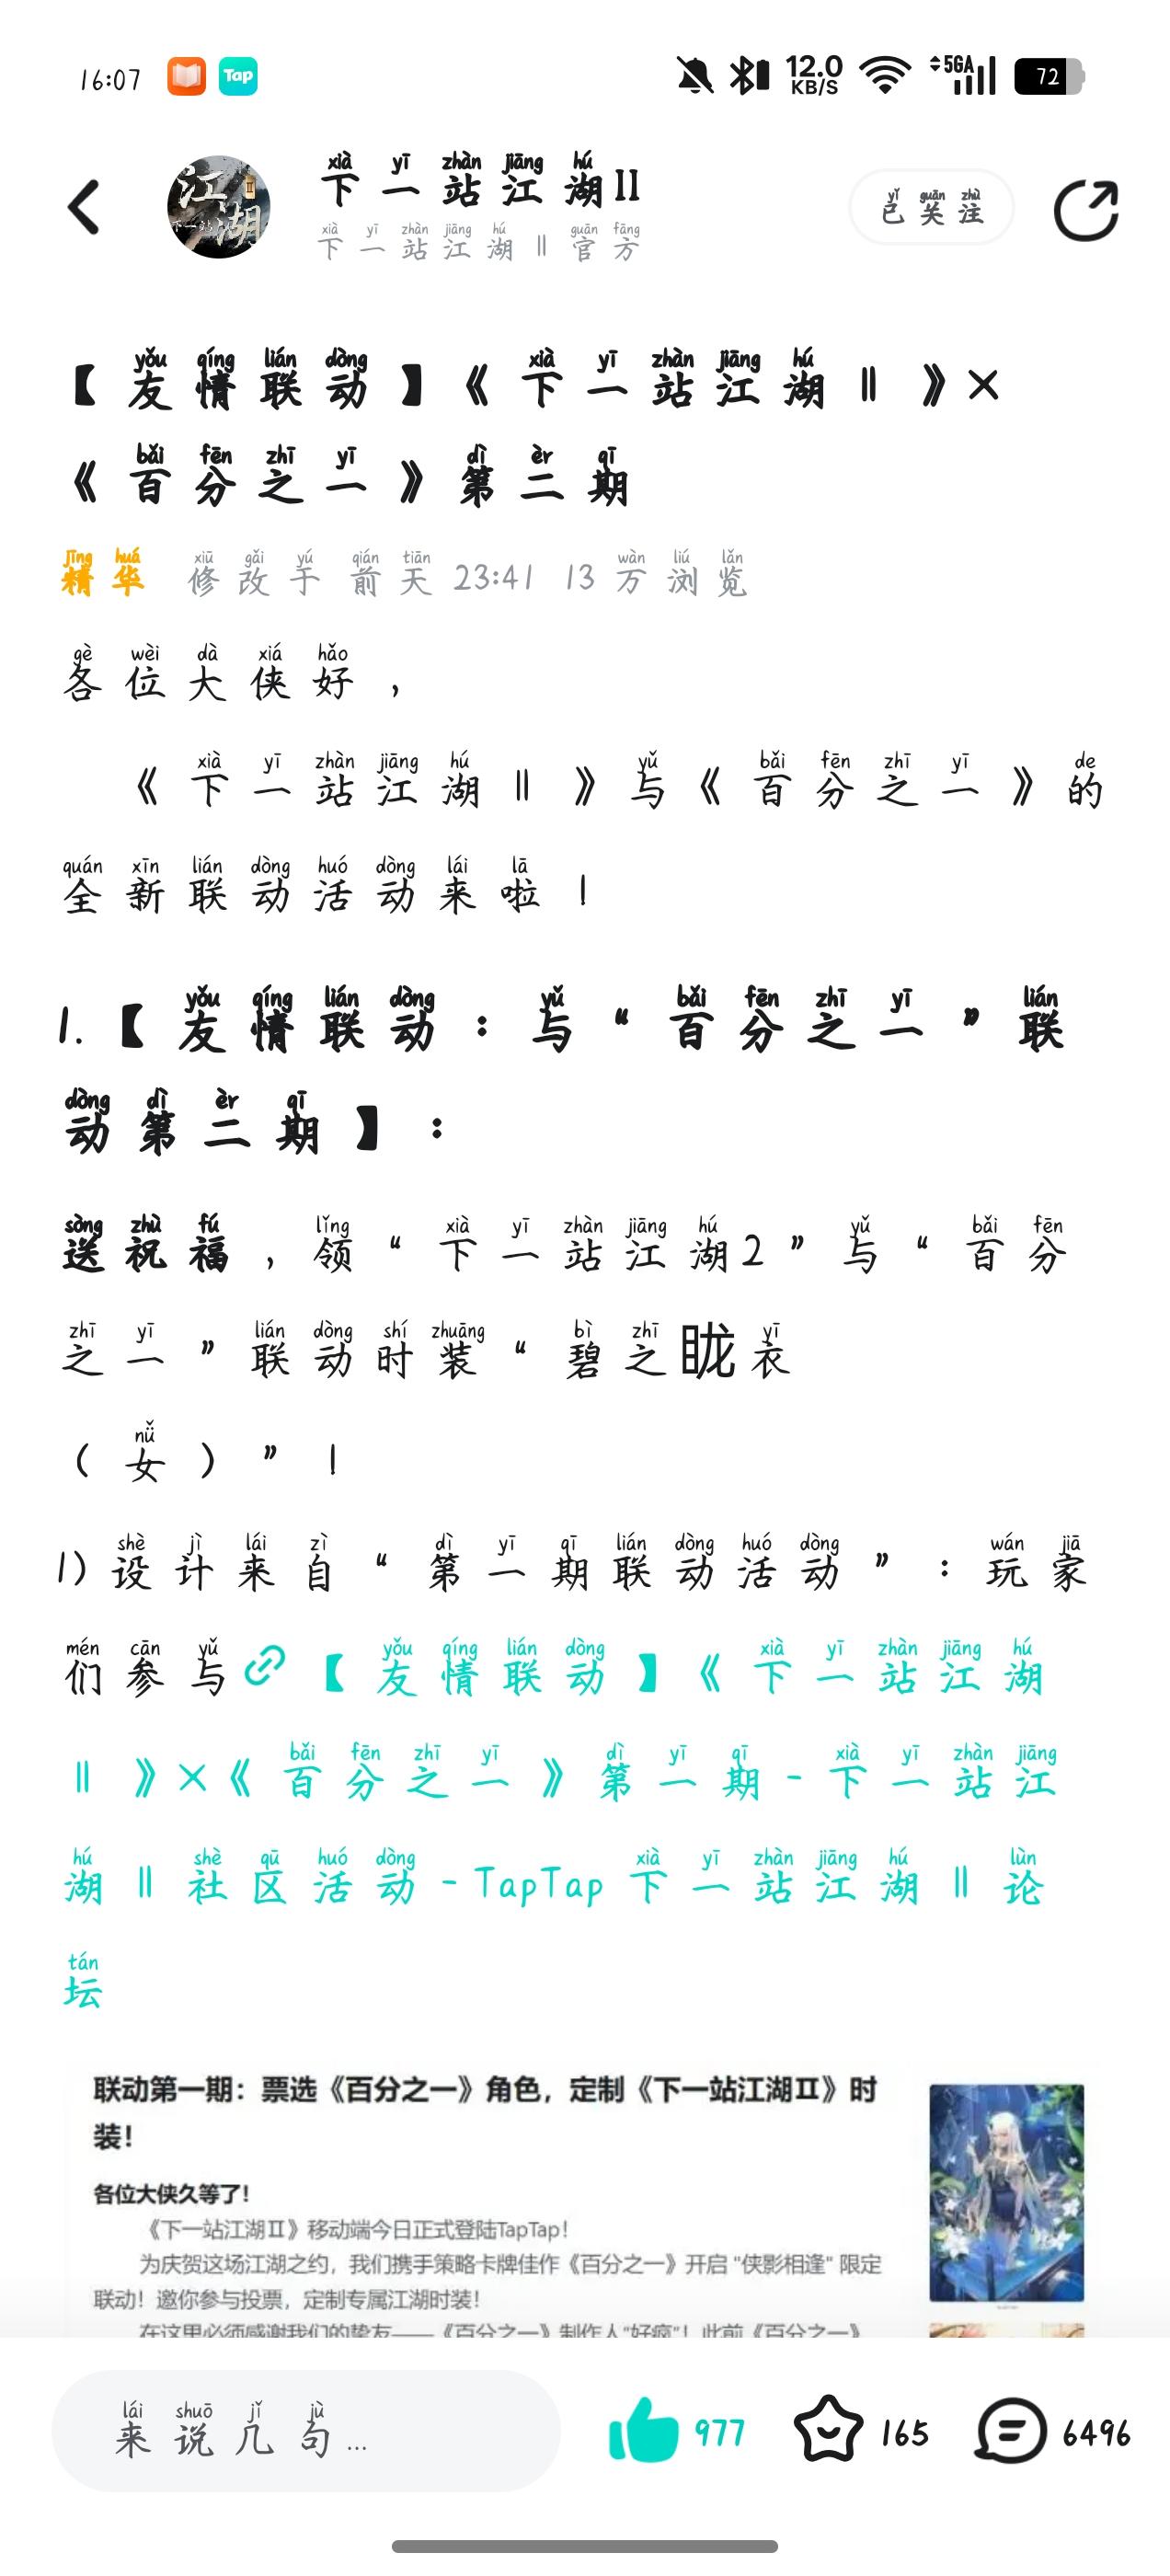 16:07
Tap
12.0
KB/S
5GA
72
xià yī zhàn jiāng hú
下一站江湖II
xià yī zhàn jiāng hú guān fāng
下一站江湖Ⅱ官方
yǐ guān zhù
已关注
江湖
yǒu qíng lián dòng xià yī zhàn jiāng hú
【友情联动】《下一站江湖Ⅱ》×
bǎi fēn zhī yī dì èr qī
《百分之一》第二期
jīng huá xiū gǎi yú qián tiān wàn liú lǎn
精华 修改于 前天 23:41 13 万浏览
gè wèi dà xiá hǎo
各位大侠好,
xià yī zhàn jiāng hú yǔ bǎi fēn zhī yī de
《下一站江湖Ⅱ》与《百分之一》的
quán xīn lián dòng huó dòng lái lā
全新联动活动来啦!
yǒu qíng lián dòng yǔ bǎi fēn zhī yī lián
1.【友情联动:与“百分之一”联
dòng dì èr qī
动第二期】:
sòng zhù fú lǐng xià yī zhàn jiāng hú yǔ bǎi fēn
送祝福,领“下一站江湖2”与“百分
zhī yī lián dòng shí zhuāng bì zhī yī
之一”联动时装“碧之眬衣
nǚ
(女)”!
shè jì lái zì dì yī qī lián dòng huó dòng wán jiā
1)设计来自“第一期联动活动”:玩家
mén cān yǔ yǒu qíng lián dòng xià yī zhàn jiāng hú
们参与【友情联动】《下一站江湖
bǎi fēn zhī yī dì yī qī xià yī zhàn jiāng
Ⅱ》×《百分之一》第一期-下一站江
hú shè qū huó dòng xià yī zhàn jiāng hú lùn
湖Ⅱ社区活动-TapTap 下一站江湖Ⅱ论
tán
坛
联动第一期：票选《百分之一》角色，定制《下一站江湖Ⅱ》时
装！
各位大侠久等了！
《下一站江湖Ⅱ》移动端今日正式登陆TapTap！
为庆贺这场江湖之约，我们携手策略卡牌佳作《百分之一》开启 "侠影相逢" 限定
联动！邀你参与投票，定制专属江湖时装！
在这里必须感谢我们的挚友——《百分之一》制作人"好疯"！此前《百分之一》
lái shuō jǐ jù
来说几句...
977
165
6496